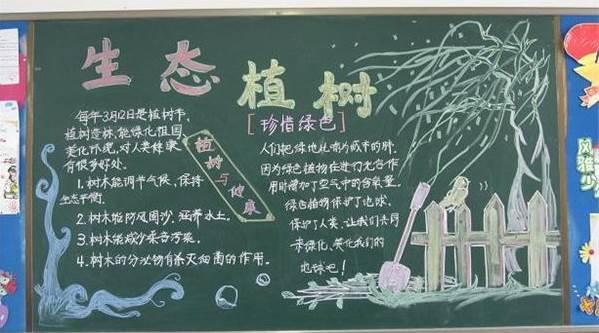 生态
植树
[珍惜绿色]
每年3月12日是植树节,
植树造林,能绿化祖国
美化环境,对人类健康
有很多好处。
1.树木能调节气候,保持
生态平衡。
2.树木能防风固沙,涵养水土。
3.树木能减少噪音污染。
4.树木的分泌物有杀灭细菌的作用。
植树与健康
人们把绿地比喻为城市的肺,
因为绿色植物在进行光合作
用时增加了空气中的含氧量,
绿色植物保护了地球,
保护了人类,让我们共同
来绿化、美化我们的
地球吧!
风雅少